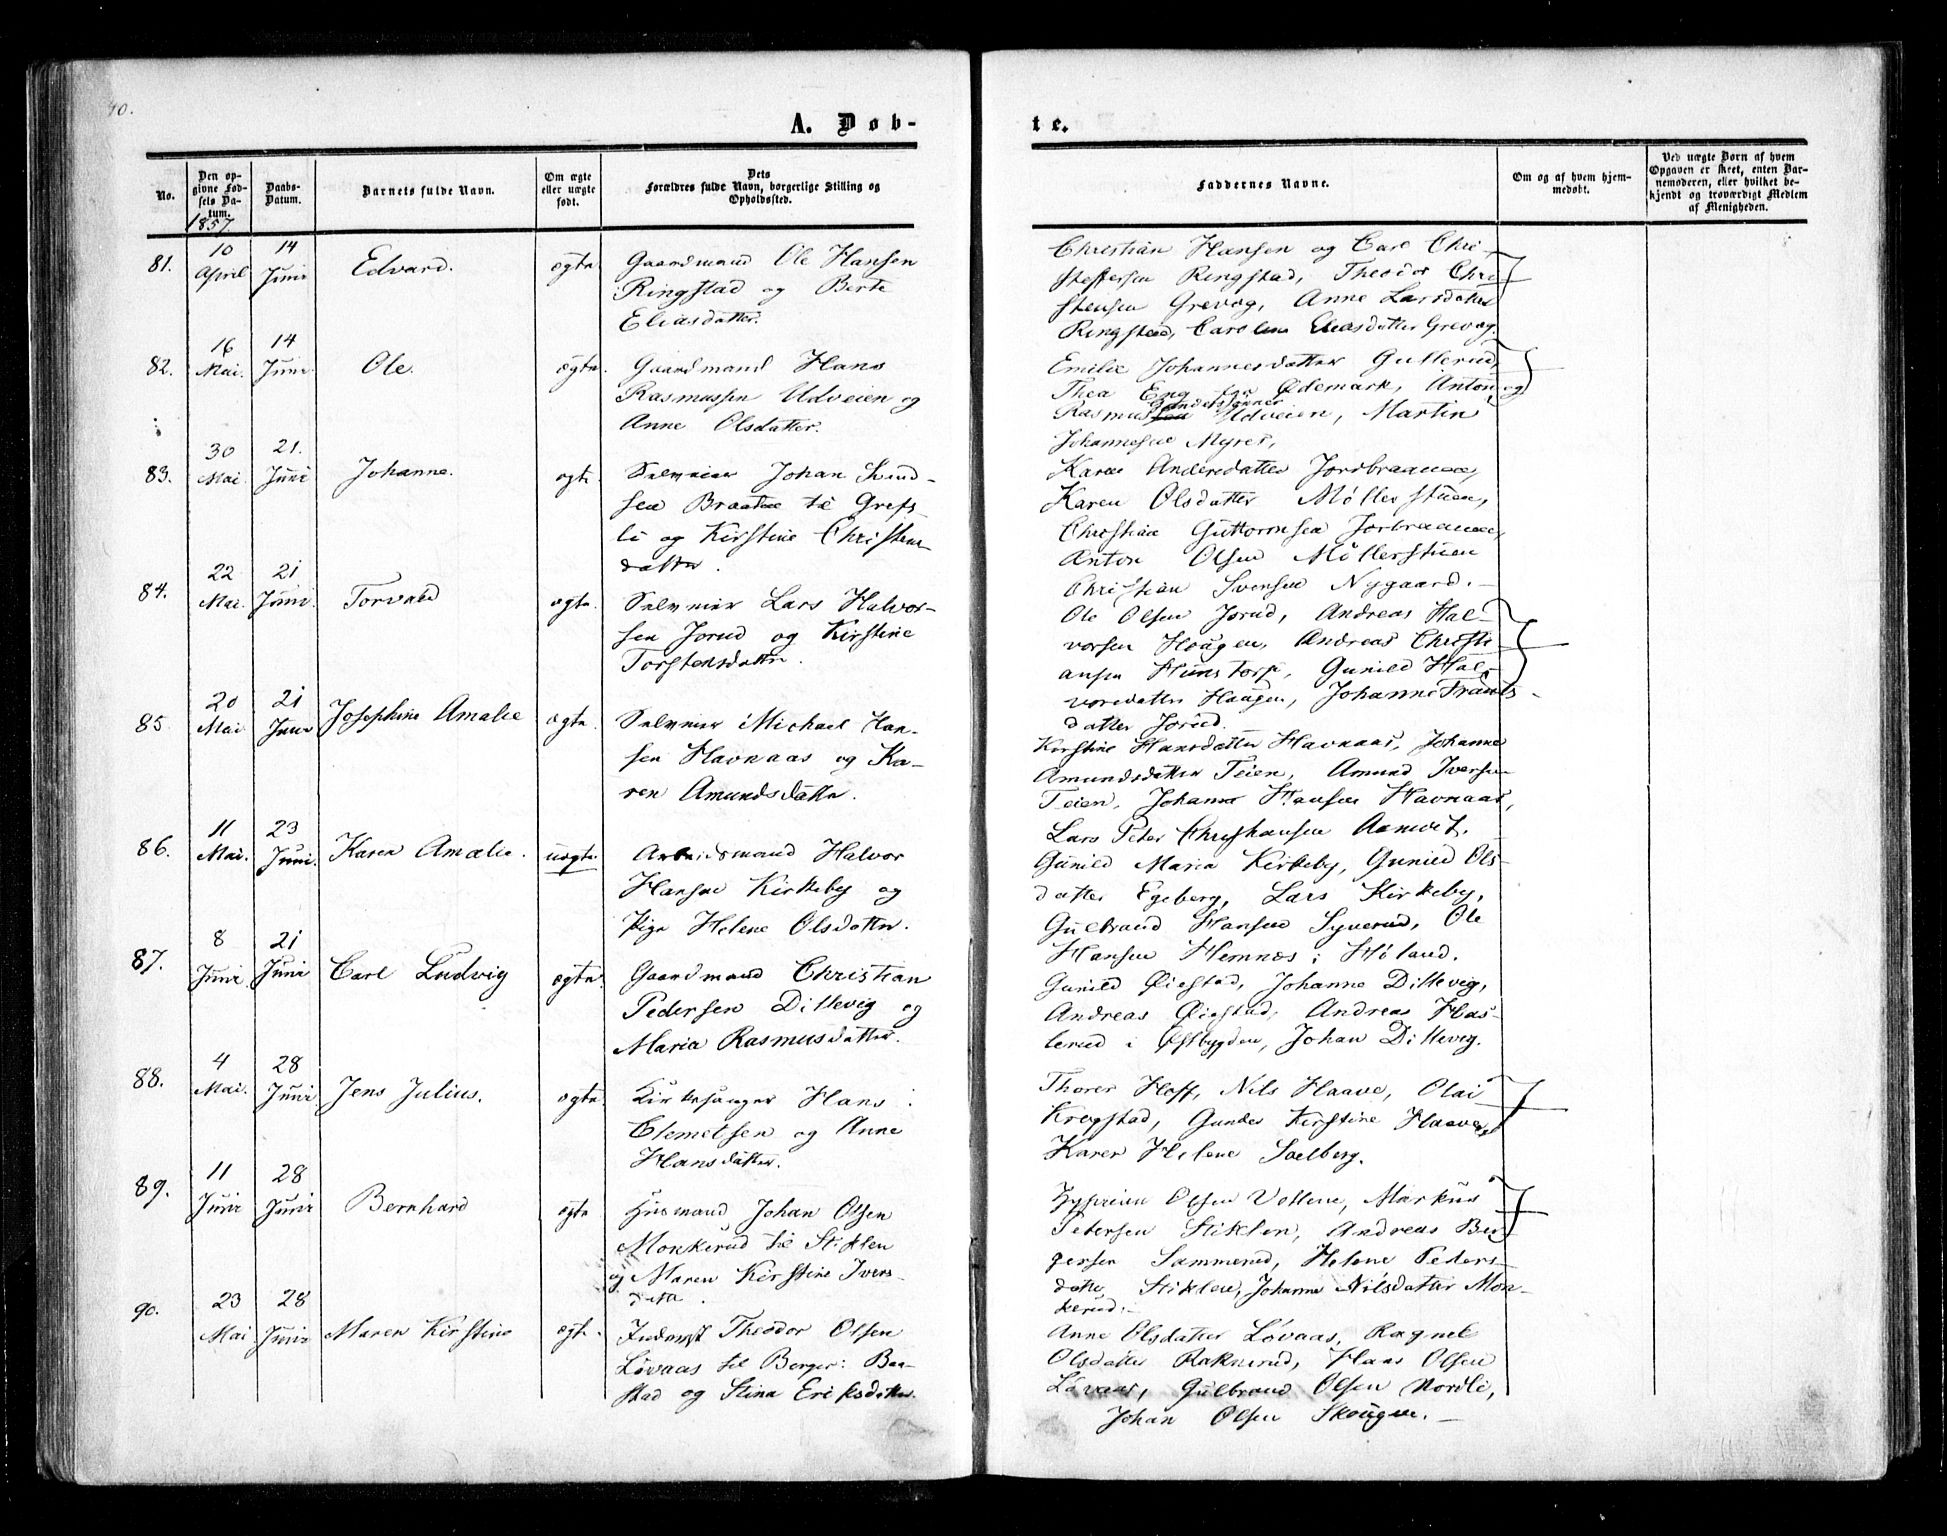 40.
A. Døb-
te.
No.
Den op-
givne Fød-
sels Da-
tum.
Daabs-
Datum.
Barnets fulde Navn.
Om ægte
eller uægte
født.
Dets
Forældres fulde Navn, borgerlige Stilling og
Opholdssted.
Faddernes Navne.
Om og af hvem hjem-
medøbt.
Ved uægte Børn af hvem
Opgaven er skeet, enten Bar-
nemoderen, eller hvilket be-
kjendt og troværdigt Medlem
af Menigheden.
1857
81.
10
April
14
Juni
Edvard.
ægte
Gaardmand Ole Hansen
Ringstad og Berte
Eliasdatter.
Christian Hansen og Carl Chri-
stoffersen Ringstad, Theodor Chri
stensen Grevog, Anne Larsdatter
Ringstad, Caroline Eliasdatter Grevog.
82.
16
Mai.
14
Juni.
Ole.
ægte.
Gaardmand Hans
Rasmussen Udveien og
Anne Olsdatter.
Emilie Johannesdatter Gutterud,
Thea Eng fra Ødemark, Anton og
Rasmus Udveien, Martin
Johannesen Myrer,
83.
30
Mai
21.
Juni
Johanne.
ægte.
Selveier Johan Knud-
sen Braaten til Grefs-
li og Kirstine Christens-
datter.
Karen Andersdatter Jordbraaten,
Karen Olsdatter Møllerstuen,
Christian Guttormsen Jorbraaten,
Anton Olsen Møllerstuen
Christian Svensen Nygaard.-
84.
22
Mai.
21
Juni.
Torvald
ægte.
Selveier Lars Halvor-
sen Jorud og Kirstine
Torstensdatter.
Ole Olsen Jorud, Andreas Hal-
vorsen Haugen, Andreas Christi
ansen Hunstorp, Gunild Hal-
vorsdatter Haugen, Johanne Frants-
datter Jorud.
85.
20
Mai
21
Juni
Josephine Amalie
ægte.
Selveier Michael Han-
sen Havnaas og Ka-
ren Amundsdatter.
Kirstine Hansdatter Havnaas, Johanne
Amundsdatter Teien, Amund Iversen
Teien, Johannes Hansen Havnaas,
Lars Peter Christiansen Aamot.
86.
11
Mai.
23
Juni.
Karen Amalie.
uægte.
Arbeidsmand Halvor
Hansen Kirkeby og
Pige Helene Olsdatter.
Gunild Maria Kirkeby, Gunild Ols-
datter Egeberg, Lars Kirkeby,
Gulbrand Hansen Syverud, Ole
Hansen Hemnæs i Høland.
87.
8
Juni.
21
Juni
Carl Ludvig
ægte.
Gaardmand Christian
Pedersen Dillevig og
Maria Rasmusdatter.
Gunild Øiestad, Johanne Dillevig,
Andreas Øiestad, Andreas Has-
lerud i Østbygden, Johan Dillevig.
88.
4
Mai.
28
Juni
Jens Julius.
ægte.
Kirkesanger Hans
Clemetsen og Anne
Hansdatter.
Thorer Hoff, Nils Haave, Olai
Krogstad, Gunder Kirstine Haave,
Karen Helene Soelberg.
89.
11
Juni
28
Juni
Bernhard
ægte
Husmand Johan Olsen
Monkerud til Stiklen
og Maren Kirstine Ivers-
datter.
Zyprian Olsen Vollene, Markus
Petersen Stiklen, Andreas Bir
gersen Sammerud, Helene Peders
datter Stiklen, Johanne Nilsdatter Mon-
kerud.-
90.
23
Mai
28
Juni
Maren Kirstine
ægte.
Inderst Theodor Olsen
Løvaas til Berger i Baa-
stad og Stina Eriksdatter.
Anne Olsdatter Løvaas, Ragnel
Olsdatter Raknerud, Hans Olsen
Løvaas, Gulbrand Olsen Nordli,
Johan Olsen Skougen.-